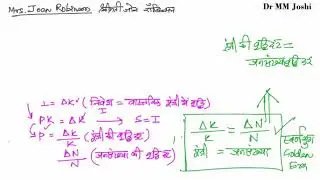 Mrs. Joan Robinson श्रीमती जोन रोबिन्सन
Dr MM Joshi
पूंजी की वृद्धि दर =
जनसंख्या वृद्धि दर
I = ΔK (निवेश = वास्तविक पूंजी में वृद्धि)
PK = ΔK → S = I
P = ΔK/K (पूंजी की वृद्धि दर)
ΔN/N (जनसंख्या की वृद्धि दर)
ΔK/K = ΔN/N
पूंजी = जनसंख्या
स्वर्णयुग
Golden
Era